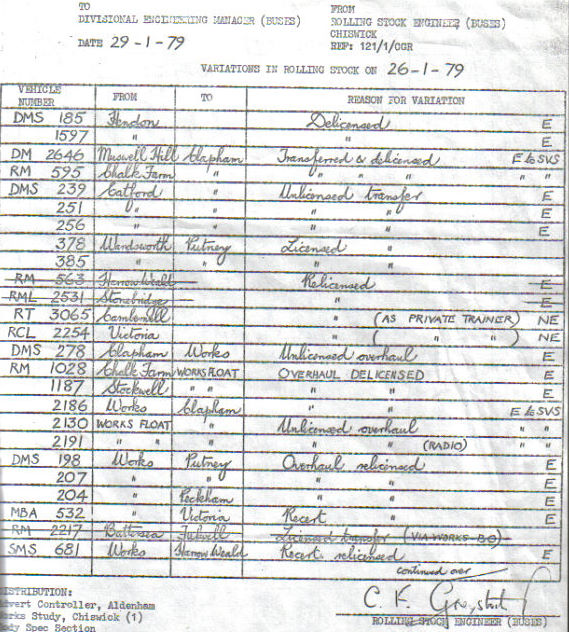 TO
DIVISIONAL ENGINEERING MANAGER (BUSES)
FROM
ROLLING STOCK ENGINEER (BUSES)
CHISWICK
REF: 121/1/CGR
DATE 29-1-79
VARIATIONS IN ROLLING STOCK ON 26-1-79
VEHICLE NUMBER FROM TO REASON FOR VARIATION
DMS 185 Hendon Delicensed E
1597 " " E
DM 2646 Muswell Hill Clapham Transferred & delicensed E to SVS
RM 595 Chalk Farm " " " " " "
DMS 239 Catford " Unlicensed transfer E
251 " " " " E
256 " " " " E
378 Wandsworth Putney Licensed "
385 " " " "
RM 563 Harrow Weald Relicensed E
RML 2531 Stonebridge " E
RT 3065 Camberwell " (AS PRIVATE TRAINER) NE
RCL 2254 Victoria " ( " " ) NE
DMS 278 Clapham Works Unlicensed overhaul E
RM 1028 Chalk Farm WORKS FLOAT OVERHAUL DELICENSED E
1187 Stockwell " " " " E
2186 Works Clapham " " E to SVS
2130 WORKS FLOAT " Unlicensed overhaul " "
2191 " " " " " (RADIO) " "
DMS 198 Works Putney Overhaul relicensed E
207 " " " " E
204 " Peckham " " E
MBA 532 " Victoria Recert " E
RM 2217 Battersea Fulwell Licensed transfer (VIA WORKS BO)
SMS 681 Works Harrow Weald Recert. relicensed E
continued over
DISTRIBUTION:
Advert Controller, Aldenham
Works Study, Chiswick (1)
Body Spec Section
C. F.
ROLLING STOCK ENGINEER (BUSES)